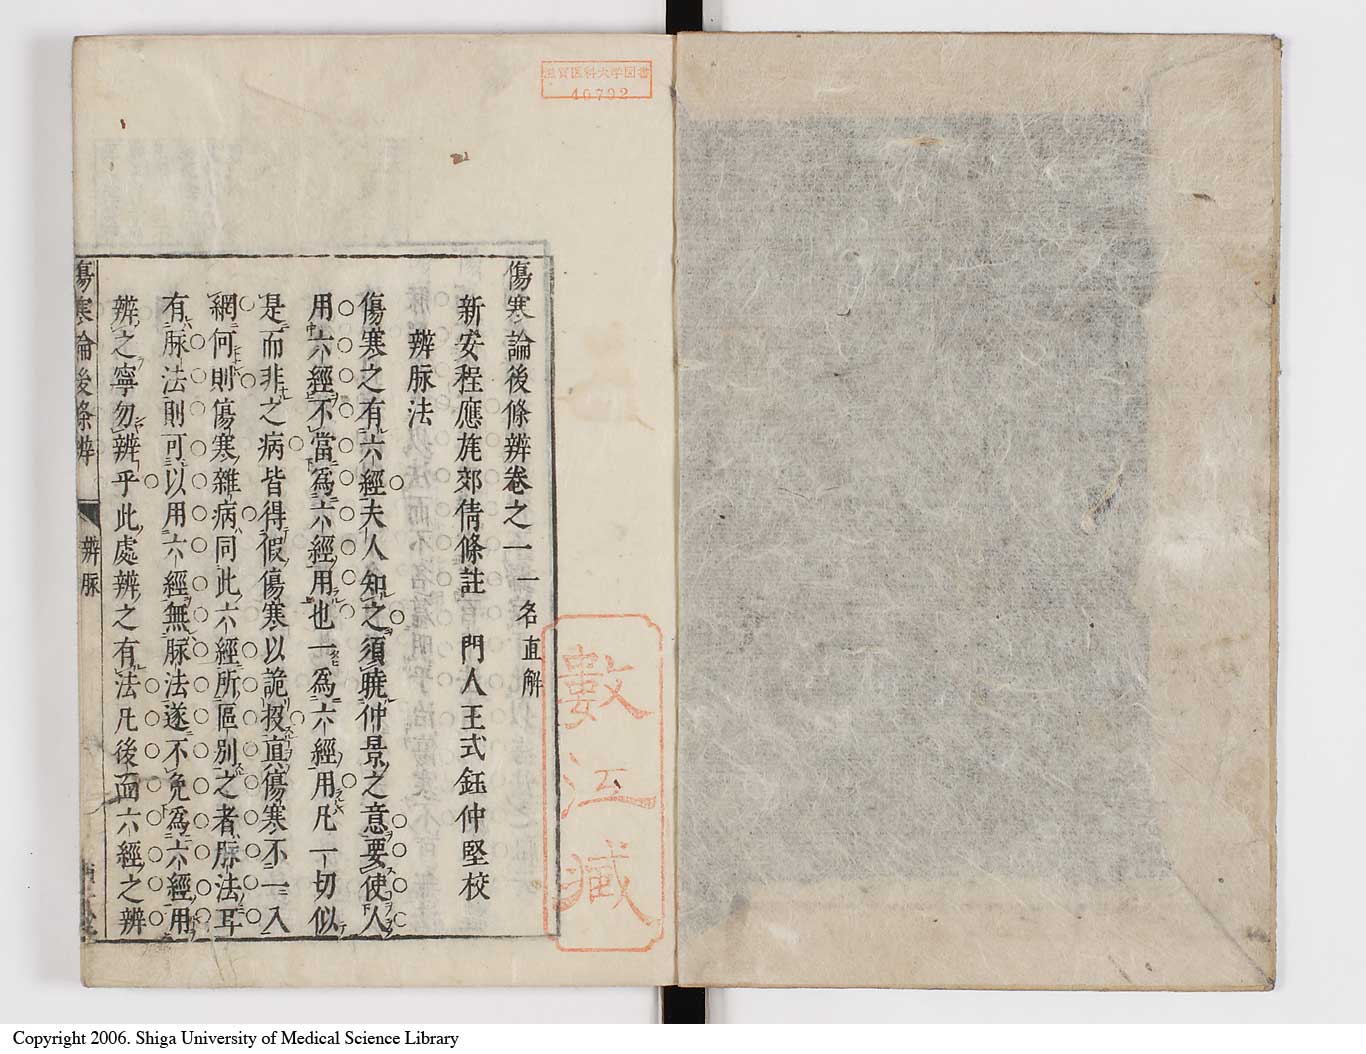 傷寒論後條辨卷之一 一名直解
新安程應旄郊倩條註 門人王式鈺仲堅校
辨脉法
傷寒之有六經夫人知之須曉仲景之意要使人
用六經不當為六經用也一為六經用凡一切似
是而非之病皆得假傷寒以詭投直傷寒不一入
網何則傷寒雜病同此六經所區別之者脉法耳
有脉法則可以用六經無脉法遂不免為六經用
辨之寧勿辨乎此處辨之有法凡後面六經之辨
傷寒論後條辨 辨脉
滋賀医科大学図書
40792
數江藏
Copyright 2006. Shiga University of Medical Science Library